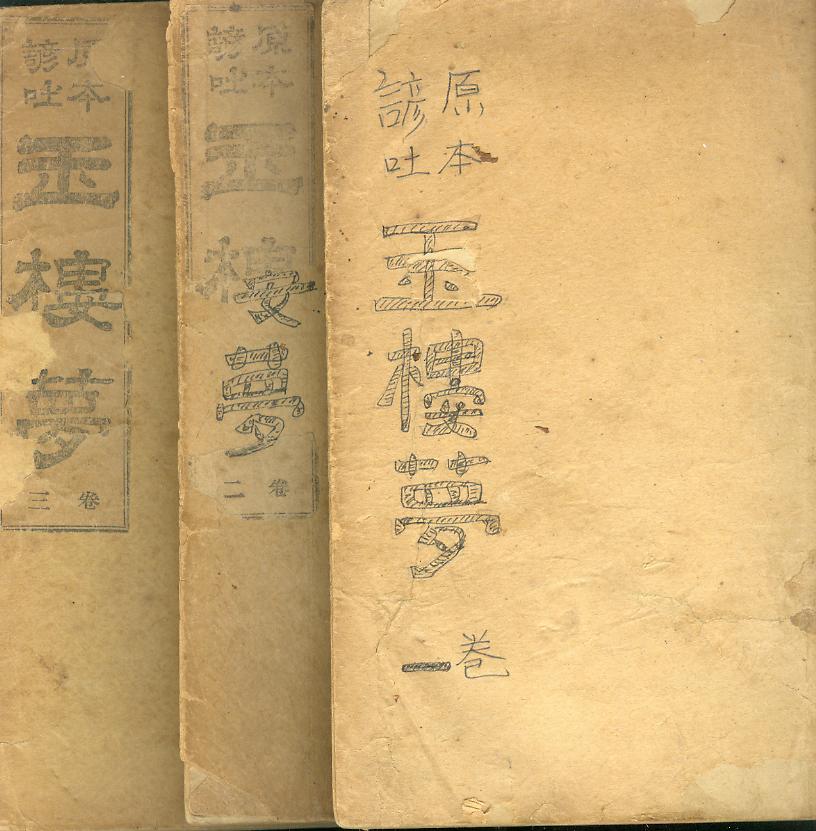 原本
諺吐
玉樓夢
卷一
原本
諺吐
玉樓夢
卷二
原本
諺吐
玉樓夢
卷三